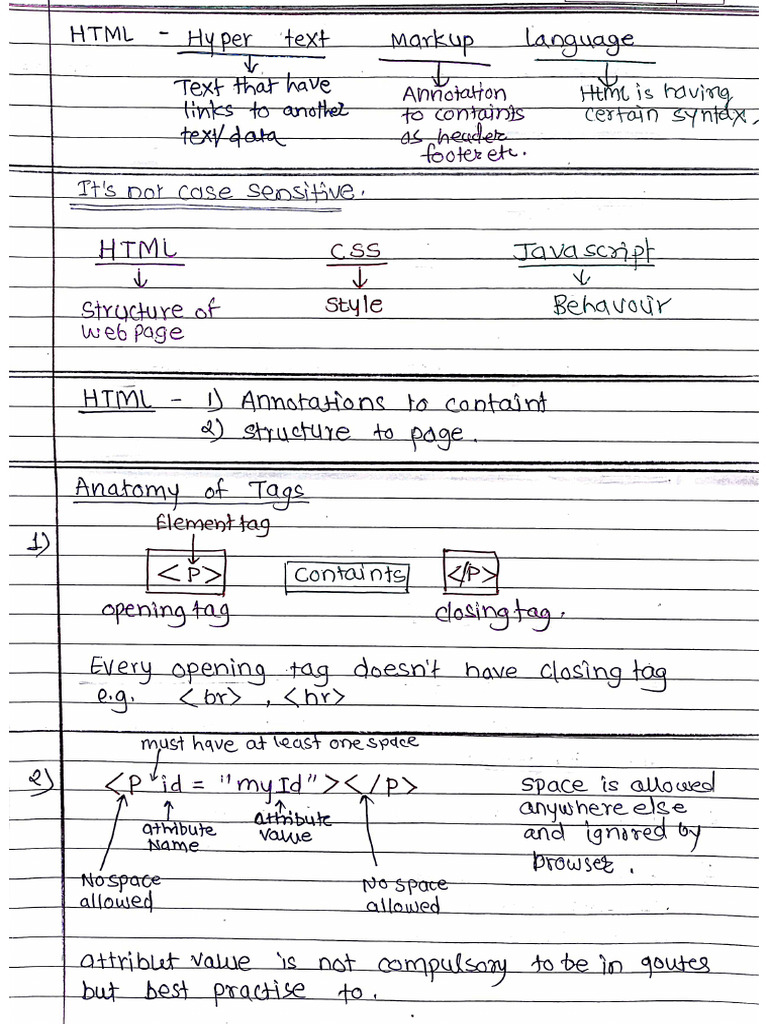 HTML - Hyper text Markup language
Text that have
links to another
text/data
Annotation
to containts
as header
footer etc.
Html is having
certain syntax.
It's not case sensitive.
HTML CSS Javascript
Structure of
web page
Style
Behavour
HTML - 1) Annotations to containt
2) structure to page.
Anatomy of Tags
Element tag
1)
<P> Containts </P>
opening tag closing tag.
Every opening tag doesn't have closing tag
e.g. <br> , <hr>
must have at least one space
2) <P id = "myId"></P>
attribute
Name
attribute
value
No space
allowed
No space
allowed
space is allowed
anywhere else
and ignored by
browser.
attribut value is not compulsory to be in qoutes
but best practise to.